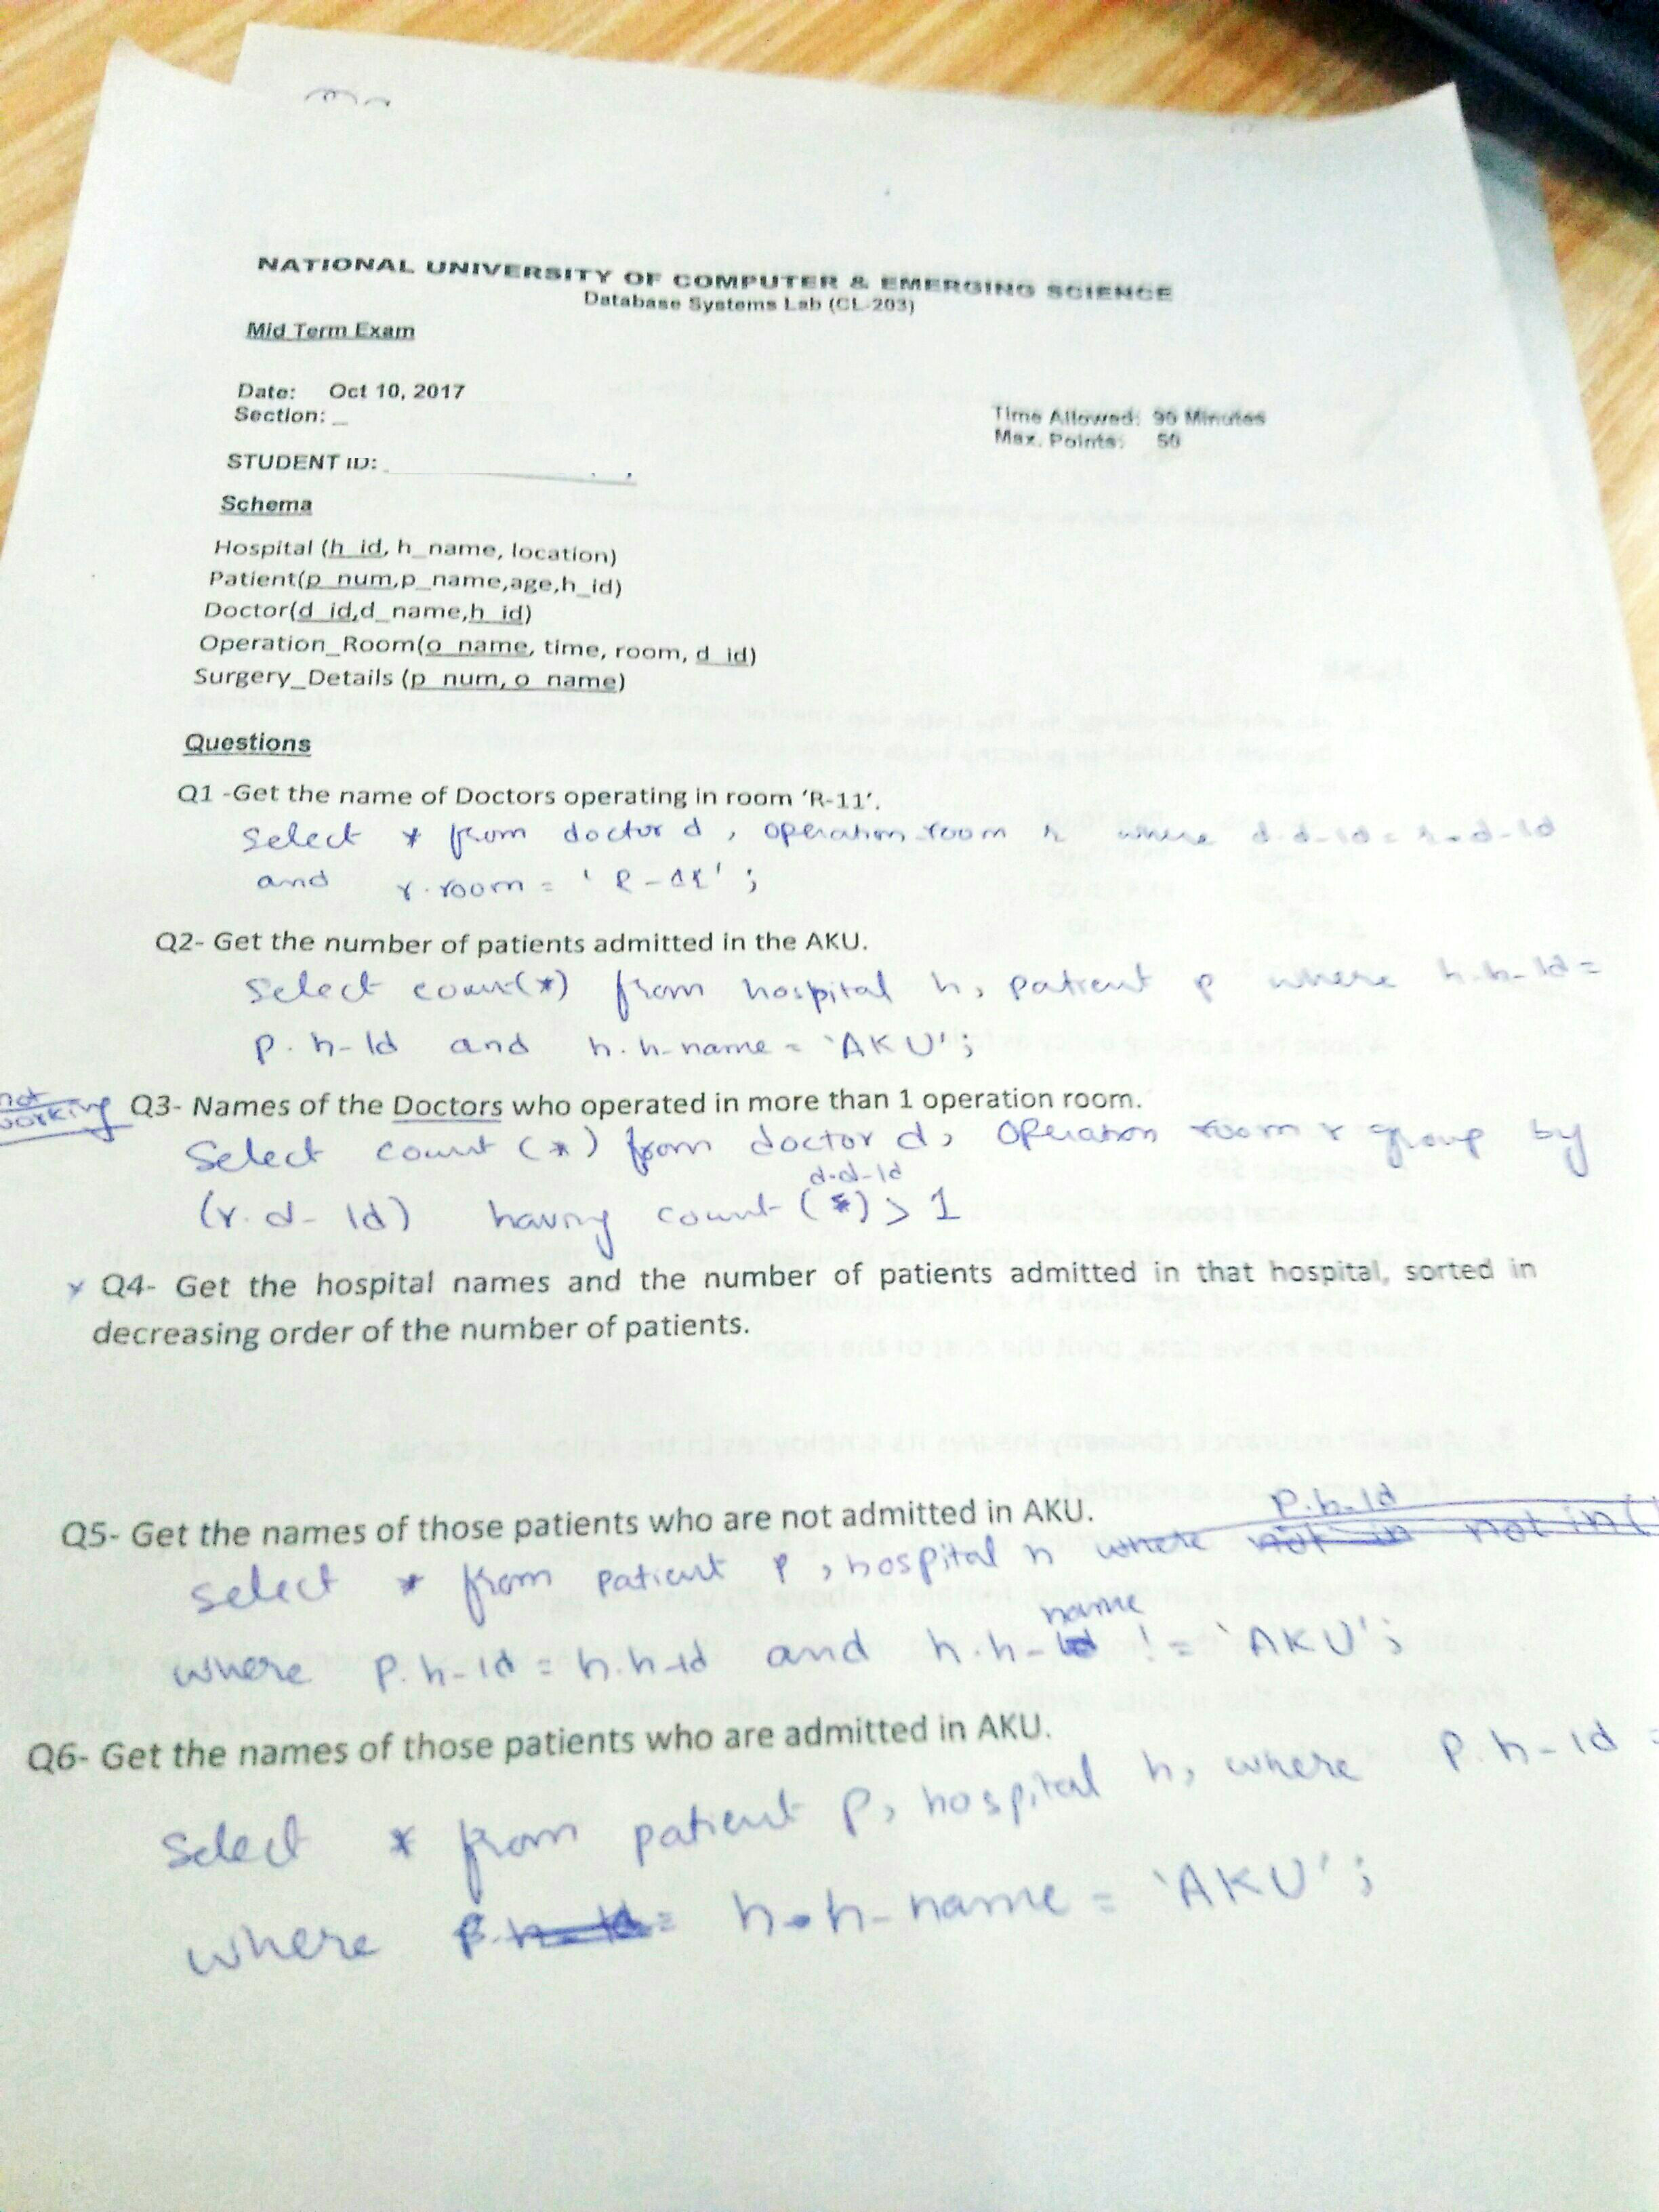 NATIONAL UNIVERSITY OF COMPUTER & EMERGING SCIENCE
Database Systems Lab (CL-203)
Mid Term Exam
Date: Oct 10, 2017
Section: _
Time Allowed: 90 Minutes
Max. Points: 50
STUDENT ID:
Schema
Hospital (h_id, h_name, location)
Patient(p_num,p_name,age,h_id)
Doctor(d_id,d_name,h_id)
Operation_Room(o_name, time, room, d_id)
Surgery_Details (p_num, o_name)
Questions
Q1 -Get the name of Doctors operating in room 'R-11'.
Select * from doctor d, operation_room r where d.d_id = r.d_id
and r.room = 'R-11';
Q2- Get the number of patients admitted in the AKU.
Select count(*) from hospital h, patient p where h.h_id =
p.h_id and h.h_name = 'AKU';
not
working
Q3- Names of the Doctors who operated in more than 1 operation room.
Select count (*) from doctor d, operation room r group by
d.d_id
(r.d_id) having count (*) > 1
x Q4- Get the hospital names and the number of patients admitted in that hospital, sorted in
decreasing order of the number of patients.
Q5- Get the names of those patients who are not admitted in AKU.
p.h_id
select * from patient p, hospital h where not in not in (
name
where p.h_id = h.h_id and h.h_id != 'AKU';
Q6- Get the names of those patients who are admitted in AKU.
Select * from patient p, hospital h, where p.h_id =
where p.h_id = h.h_name = 'AKU';